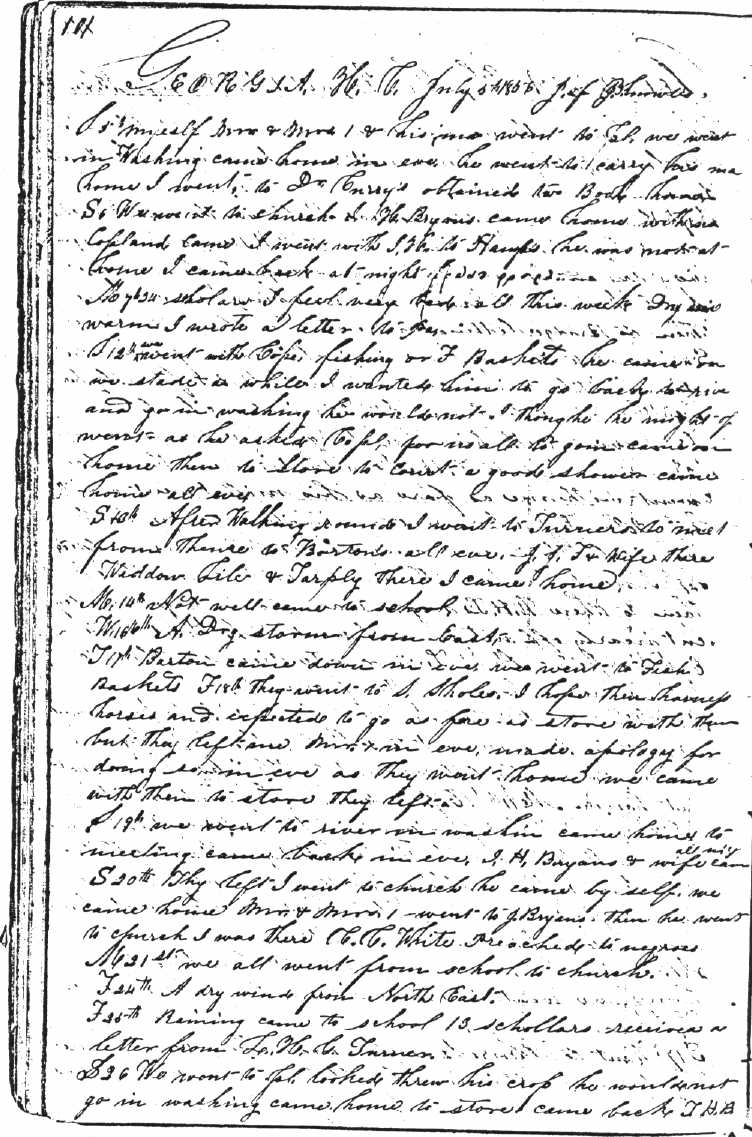 104
GEORGIA. H. C. July 5th 1856 J. of
S 5th myself Mr & Mrs 1 & his ma went to we went
in Washing came home in eve he went to carry his ma
home I went to Dr Curry's obtained two Books home
S 6 We went to church & H Bryans came home with us
Copland came I went with J. H. to he was not at
home I came back at night
M 7th 24 scholars I feel very bad all this week Dry and
warm I wrote a letter to
S 12th we went with Cope, fishing or F Baskets he came on
we staid a while I wanted him to go back to rive
and go in washing he would not. I thought he might of
went as he asked for us all to go in came on
home then to Store to Court a good shower came
home all eve
S 13th After Walking round I went to Turners to meet
from thence to Bartons all eve. J. J. T & Wife there
Widdow Lile & Tarply there I came home
M. 14th Not well came to school
W 16th A Dry storm from East
T 17th Barton came down in eve we went to Fish
Baskets F 18th they went to S. Sholes. I hope them harness
horses and expected to go as fare as store with them
but they left me Mr in eve, made apology for
doing so in eve as they went home we came
with them to store they left
S 19th we went to river in washin came home to
meeting came back in eve, J. H. Bryans & wife came
all nig
S 20th Thy left I went to church he came by self. we
came home Mr & Mrs 1 went to J Bryans. then he went
to church I was there C. C. White Preached to negroes
M 21st we all went from school to church.
F 24th A dry wind from North East.
F 25th Raining came to school 13 schollars received a
letter from L. H. C. Turner
S 26 We went to looked threw his crop he would not
go in washing came home to store came back J H B